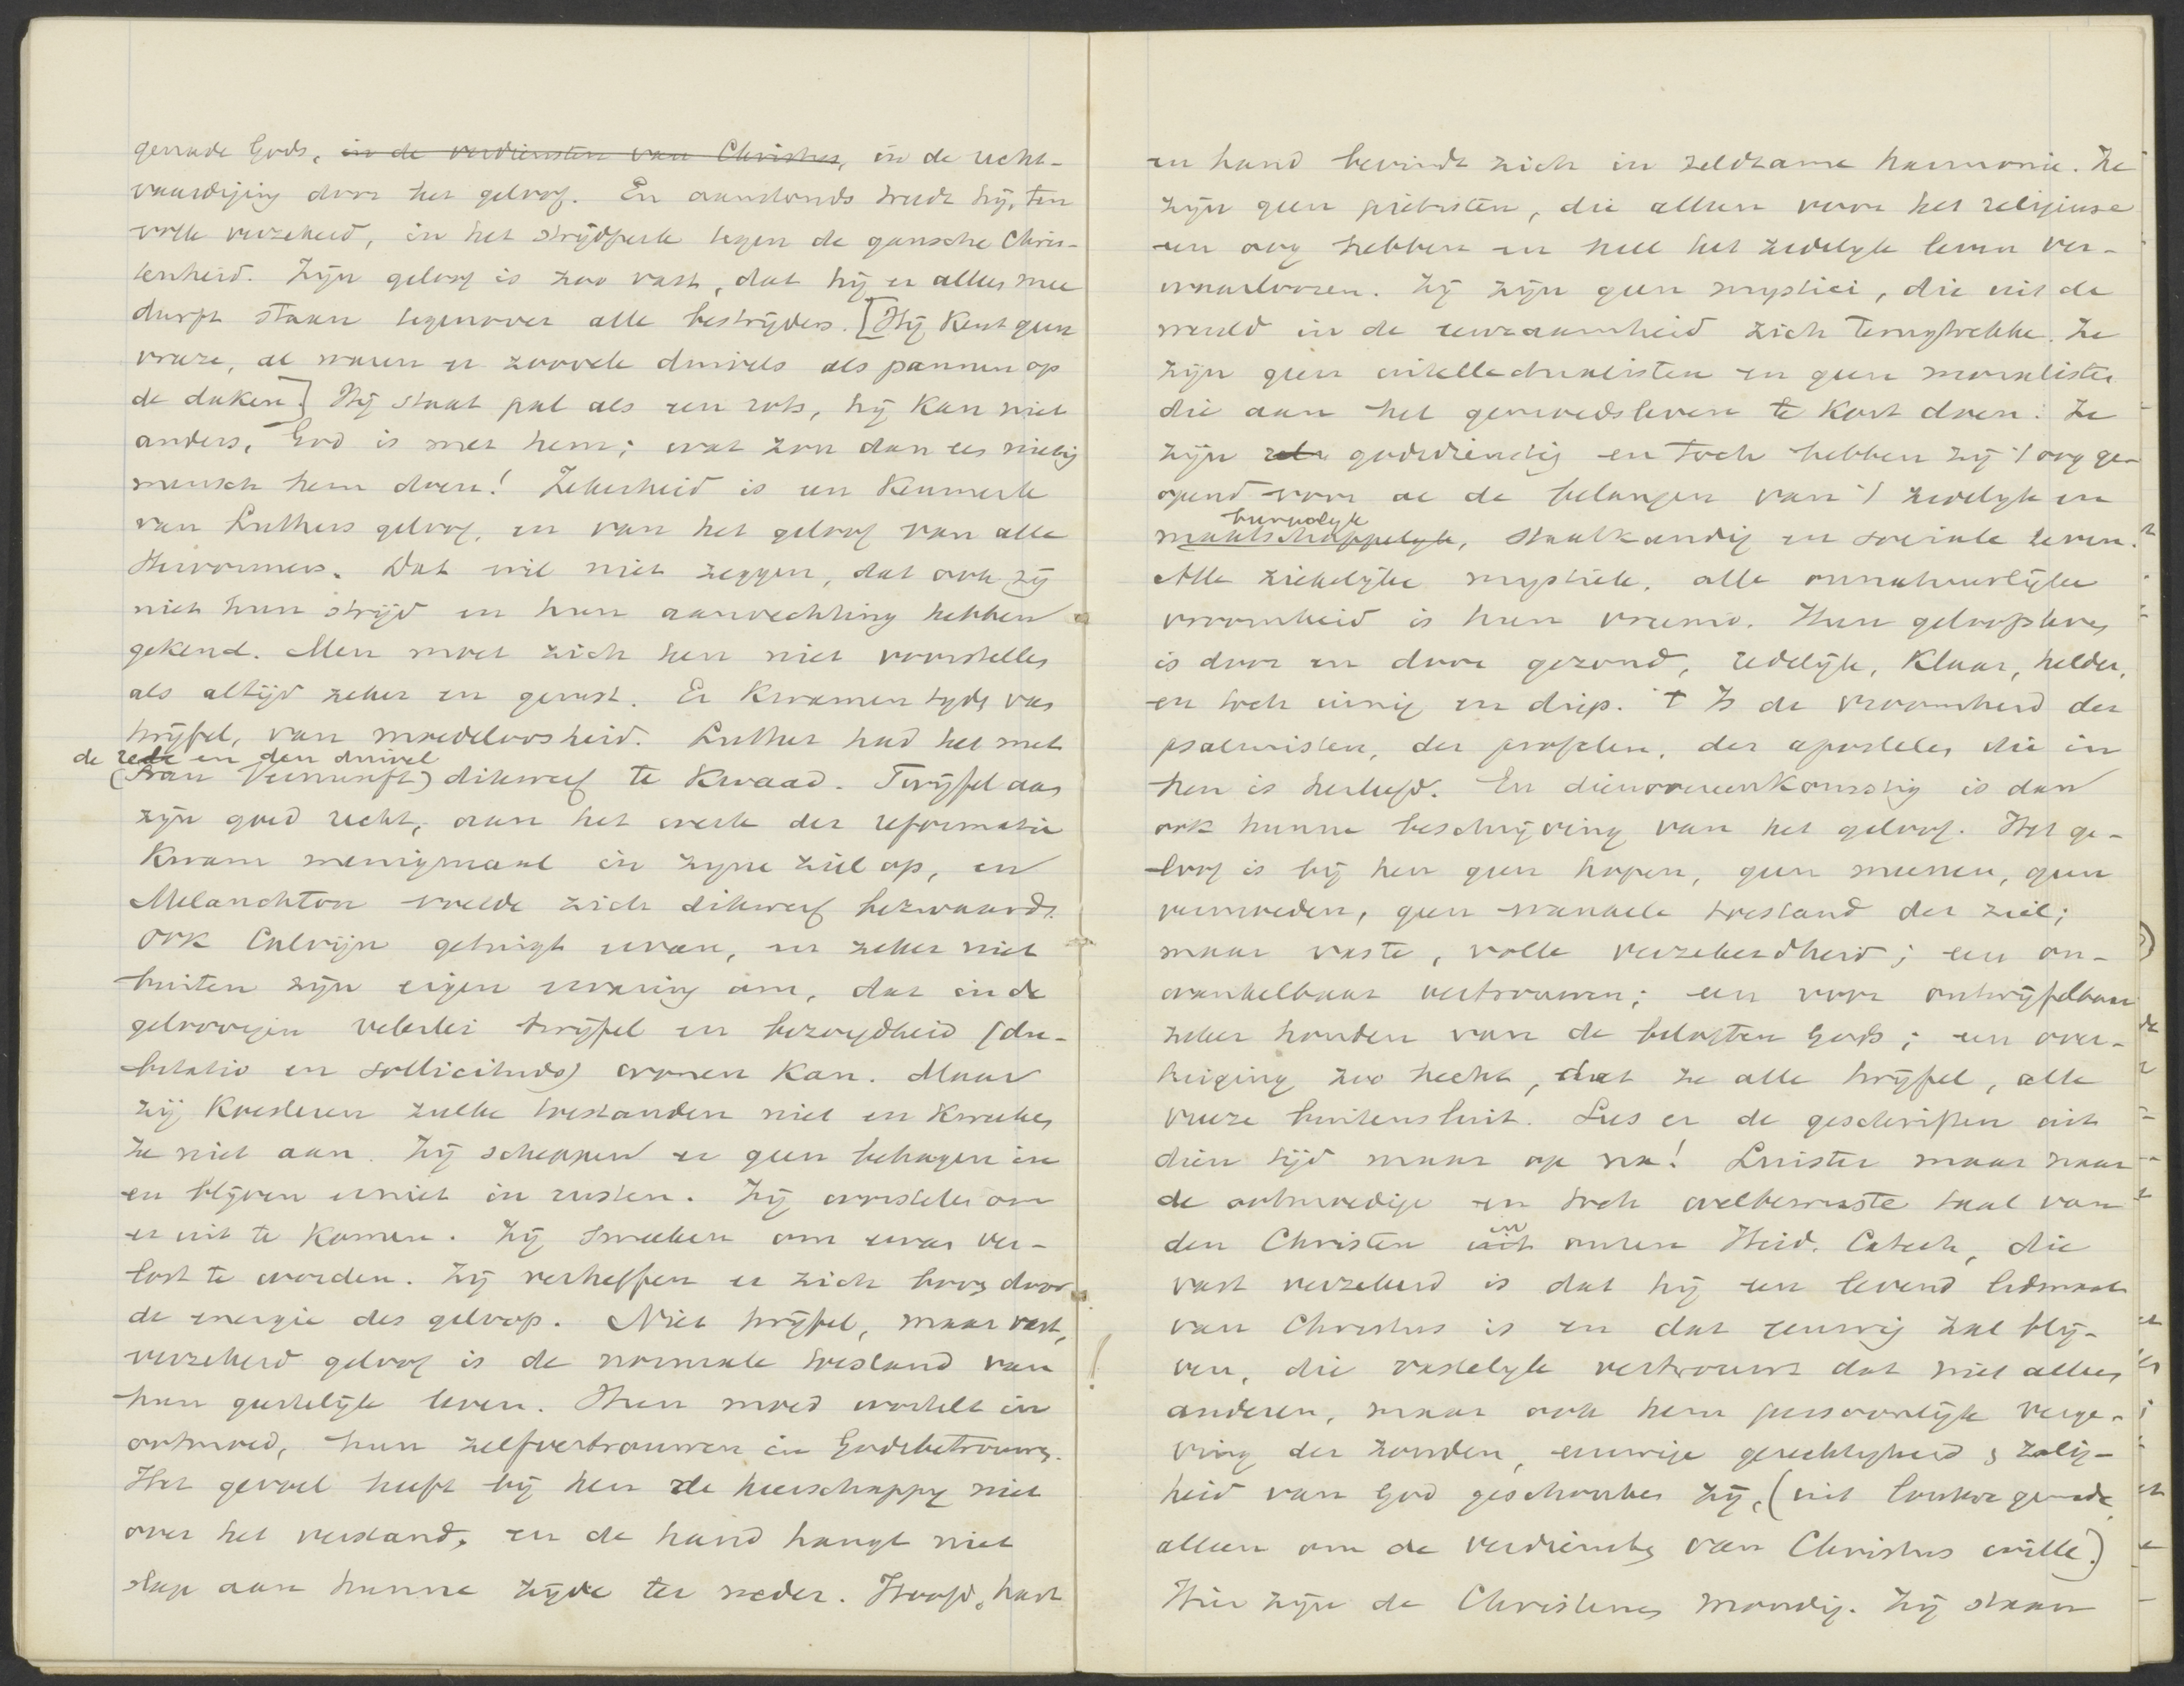 genade Gods, in de verdiensten van Christus, in de recht-
vaardiging door het geloof. En aanstonds treedt hij, ten
volle verzekerd, in het strijdperk tegen de gansche Chris-
tenheid. Zijn geloof is zoo vast, dat hij er alles mee
durft staan tegenover alle bestrijders. [Hij kent geen
vreze, al waren er zoovele duivels als pannen op
de daken.] Hij staat pal als een rots, hij kan niet
anders, God is met hem; wat zou dan een nietig
mensch hem doen! Zekerheid is een kenmerk
van Luthers geloof, en van het geloof van alle
Hervormers. Dat wil niet zeggen, dat ook zij
niet hun strijd en hun aanvechting hebben
gekend. Men moet zich hen niet voorstellen
als altijd zeker en gerust. Er kwamen tyds van
twijfel, van moedeloosheid. Luther had het met
de rede en den duivel
(Frau Vernunft) dikwerf te kwaad. Twijfel aan
zijn goed recht, aan het werk der reformatie
kwam menigmaal in zyne ziel op, en
Melanchton voelde zich dikwerf bezwaard.
Ook Calvijn getuigt ervan, en zeker niet
buiten zijn eigen ervaring om, dat in de
geloovigen velerlei twijfel en bezorgdheid (du-
bitatio en sollicitudo) wonen kan. Maar
zij koesteren zulke toestanden niet en kweeken
ze niet aan. Zij scheppen er geen behagen in
en blijven er niet in rusten. Zij worstelen om
er uit te komen. Zij smeeken om ervan ver-
lost te worden. Zij verheffen er zich boven door
de energie des geloofs. Niet twijfel, maar vast,
verzekerd geloof is de normale toestand van
hun geestelijk leven. Hun moed wortelt in
ootmoed, hun zelfvertrouwen in Godsbetrouwen.
Het gevoel heeft bij hen de heerschappy niet
over het verstand, en de hand hangt niet
slap aan hunne zijde ter neder. Hoofd, hart
en hand bevindt zich in zeldzame harmonie. Ze
zijn geen piëtisten, die alleen voor het religieuse
een oog hebben en heel het zedelyk leven ver-
waarloozen. Zij zijn geen mystici, die uit de
wereld in de eenzaamheid zich terugtrekke. Ze
zijn geen intellectualisten en geen moralisten
die aan het gemoedsleven te kort doen. Ze
zijn godsdienstig en toch hebben zij 't oog ge-
opend voor al de belangen van 't zedelyk en
burgelyk
maatschappelyk, staatkundig en sociale leven.
Alle ziekelijke mystiek, alle onnatuurlijke
vroomheid is hun vreemd. Hun geloofsleven
is door en door gezond, redelijk, klaar, helder,
en toch innig en diep. 't Is de vroomheid der
psalmisten, der profeten, der apostelen die in
hen is herleefd. En dienovereenkomstig is dan
ook hunne beschrijving van het geloof. Het ge-
loof is bij hen geen hopen, geen meenen, geen
vermoeden, geen wankele toestand der ziel;
maar vaste, volle verzekerdheid; een on-
wankelbaar vertrouwen; een voor ontwijfelbaar
zeker houden van de beloften Gods; een over-
tuiging zoo hecht, dat ze alle twijfel, alle
vreze buitensluit. Lees er de geschriften uit
dien tijd maar op na! Luister maar naar
de ootmoedige en toch welbewuste taal van
in
den Christen uit onzen Heid. Catech, die
vast verzekerd is dat hij een levend lidmaat
van Christus is en dat eeuwig zal blij-
ven, die vastelyk vertrouwt dat niet alleen
anderen, maar ook hem persoonlijk verge-
ving der zonden, eeuwige gerechtigheid & zalig-
heid van God geschonken zij, (uit loutere genade,
alleen om de verdiensten van Christus wille.)
Hier zijn de Christenen mondig. Zij staan